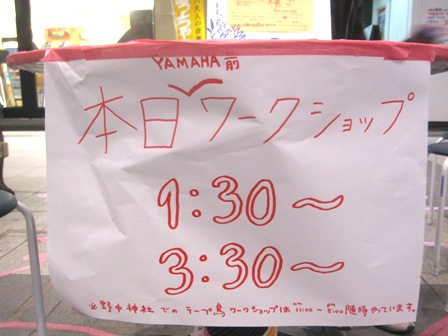 YAMAHA 前
本日ワークショップ
1:30〜
3:30〜
※野中神社でのテープ鳥ワークショップは11:00〜5:00随時やっています。